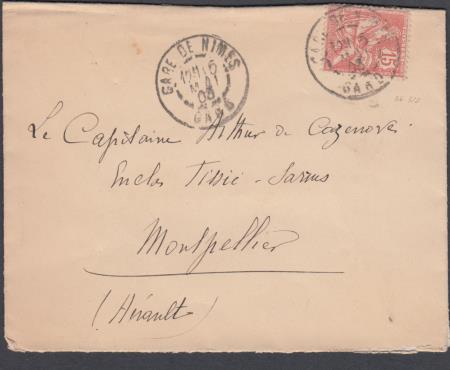 GARE DE NIMES
GARD
15
GARD
Le Capitaine Arthur de Cazenove
Enclos Tissié-Sarrus
Montpellier
(Hérault)